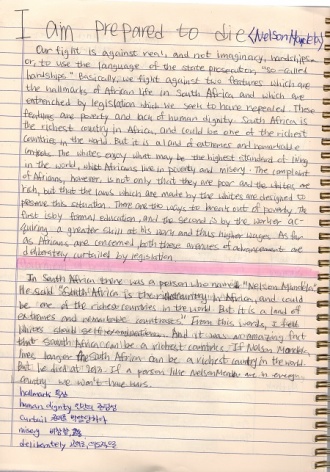 I am prepared to die (Nelson Mandela)
Our fight is against real, and not imaginary, hardships
or, to use the language of the state prosecution, "so-called
hardships." Basically, we fight against two features which are
the hallmarks of African life in South Africa and which are
entrenched by legislation which we seek to have repealed. These
features are poverty and lack of human dignity. South Africa is
the richest country in Africa, and could be one of the richest
countries in the world. But it is a land of extremes and remarkable
The whites enjoy what may be the highest standard of living
in the world, whilst Africans live in poverty and misery. The complaint
of Africans, however, is not only that they are poor and the whites are
rich, but that the laws which are made by the whites are designed to
preserve this situation. There are two ways to break out of poverty. The
first is by formal education, and the second is by the worker ac-
quiring a greater skill at his work and thus higher wages. As far
as Africans are concerned, both these avenues of advancement are
deliberately curtailed by legislation.
In South Africa there was a person who named "Nelson
He said "South Africa is the country in Africa, and could
be one of the richest countries in the world. But it is a land of
extremes and remarkable From this words, I feel
whites should And it was an amazing fact
that south African can be a richest countries. If Nelson Mandela,
lives longer the South African can be a richest country in the world.
But he died at 2013. If a person like Nelson Mandela are in
country we won't have wars.
hallmark 특징
human dignity 인간의 존엄성
curtail
misery 비참함,
deliberately